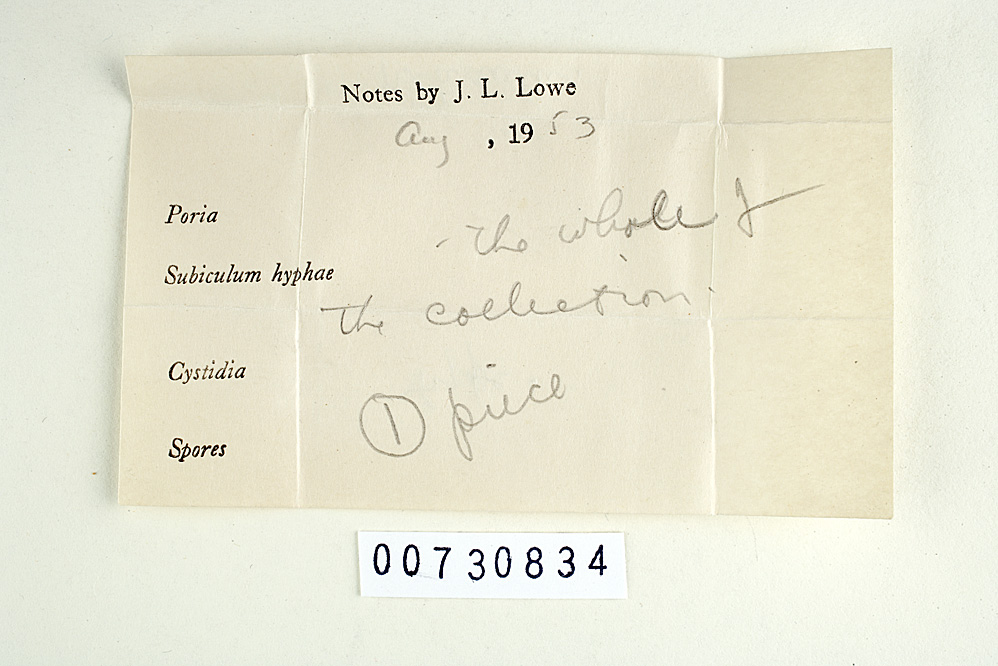 Notes by J. L. Lowe
Aug , 1953
Poria
- The whole of
Subiculum hyphae
the collection.
Cystidia
① piece
Spores
00730834